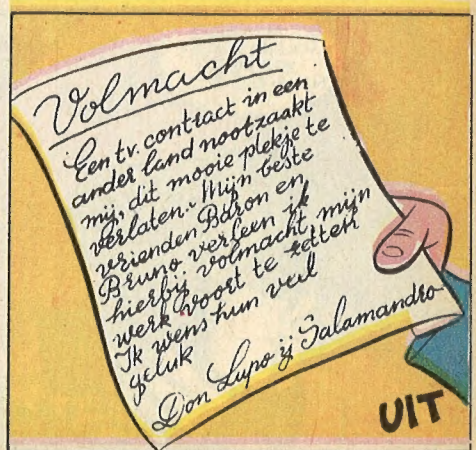 Volmacht
Een tv. contract in een
ander land nootzaakt
mij, dit mooie plekje te
verlaten. Mijn beste
vrienden Baron en
Bruno verleen ik
hierbij volmacht, mijn
werk voort te zetten
Ik wens hun veel
geluk
Don Lupo ij Salamandro
UIT